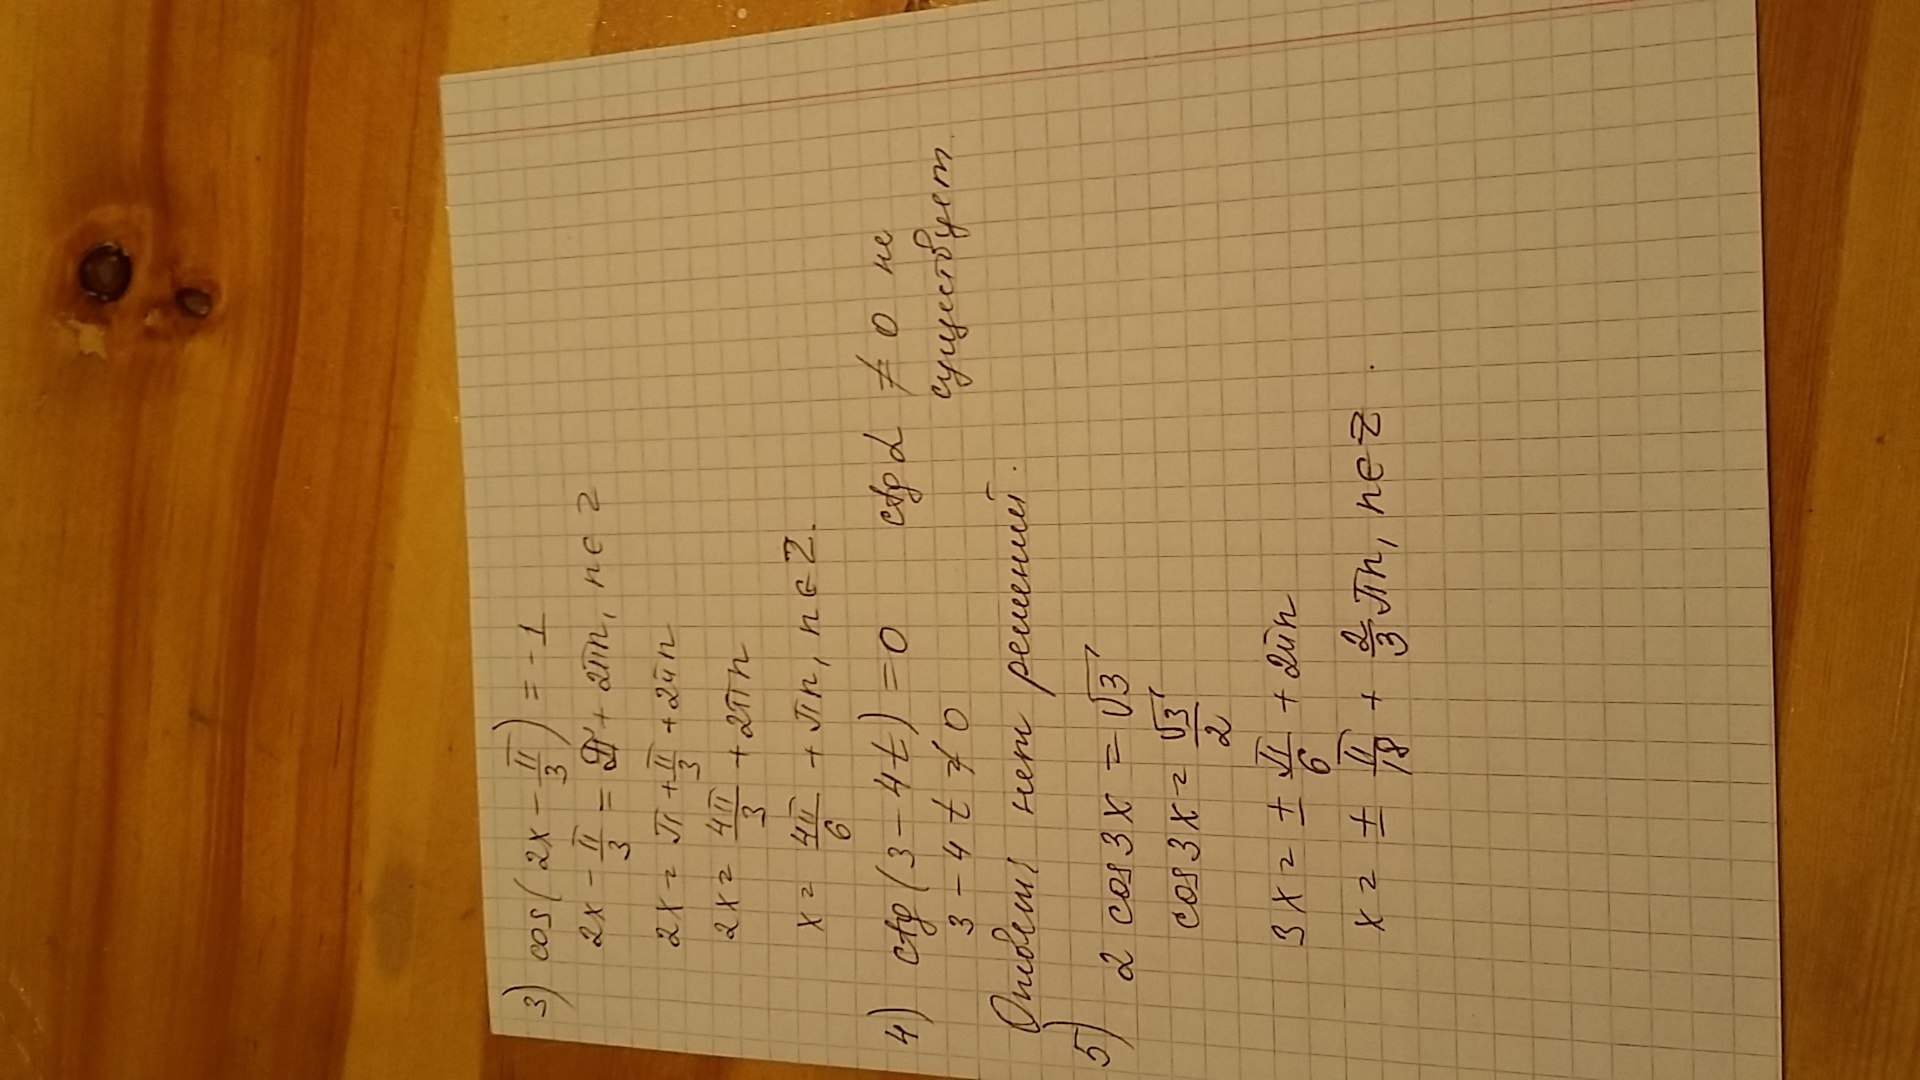 3) cos(2x - π/3) = -1
2x - π/3 = π + 2πn, n∈Z
2x = π + π/3 + 2πn
2x = 4π/3 + 2πn
x = 4π/6 + πn, n∈Z.
4) ctg(3 - 4t) = 0 ctg α ≠ 0 не
3 - 4t ≠ 0 существует.
Ответ: нет решений.
5) 2 cos 3x = √3
cos 3x = √3/2
3x = ± π/6 + 2πn
x = ± π/18 + 2/3 πn, n∈Z.